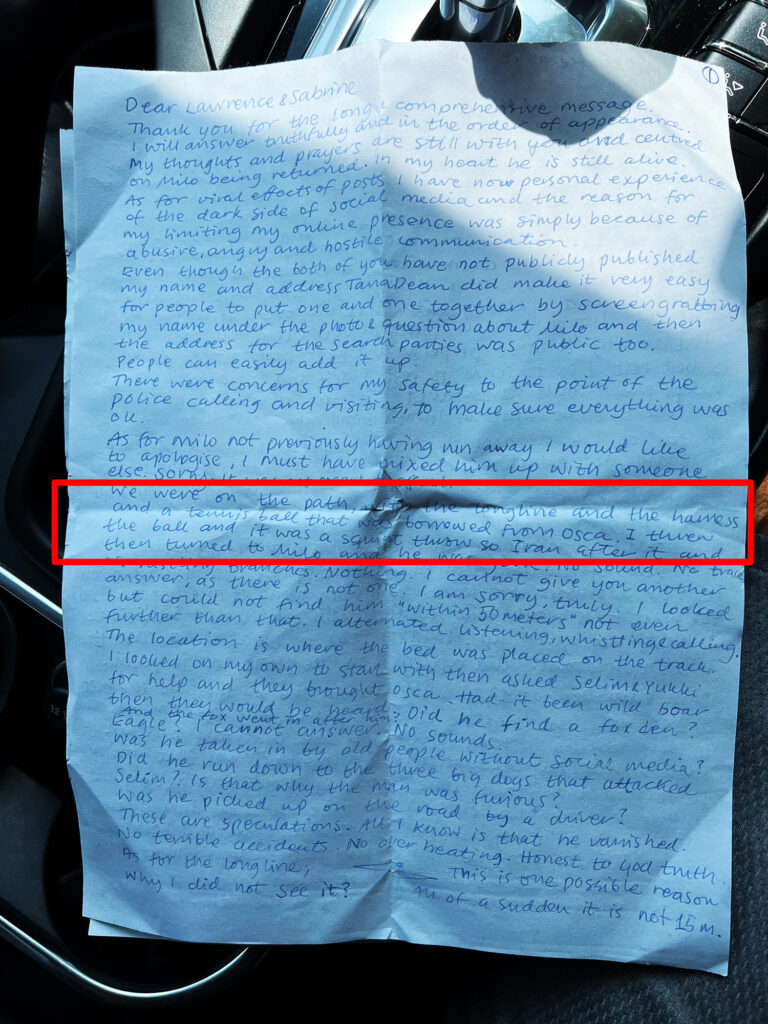 ①
Dear Lawrence & Sabrine
Thank you for the long & comprehensive message.
I will answer truthfully and in the order of appearance.
My thoughts and prayers are still with you and centred
on Milo being returned. In my heart he is still alive.
As for viral effects of posts I have now personal experience
of the dark side of social media and the reason for
my limiting my online presence was simply because of
abusive, angry and hostile communication.
Even though the both of you have not publicly published
my name and address Tana Dean did make it very easy
for people to put one and one together by screengrabbing
my name under the photo & question about Milo and then
the address for the search parties was public too.
People can easily add it up.
There were concerns for my safety to the point of the
police calling and visiting, to make sure everything was
ok.
As for Milo not previously having run away I would like
to apologise, I must have mixed him up with someone
else. Sorry. It was not
We were on the path, with the longline and the harness
and a tennis ball that was borrowed from Osca. I threw
the ball and it was a squint throw so I ran after it and
then turned to Milo and he was gone. No sound. No trace
rustling branches. Nothing. I cannot give you another
answer, as there is not one. I am sorry, truly. I looked
but could not find him "within 50 meters" not even
further than that. I alternated listening, whistling & calling.
The location is where the bed was placed on the track.
I looked on my own to start with then asked Selim & Yukki
for help and they brought Osca. Had it been wild boar
then they would be heard. Did he find a fox den?
And the fox went in after him?
Eagle? I cannot answer. No sounds.
Was he taken in by old people without social media?
Did he run down to the three big dogs that attacked
Selim? Is that why the man was furious?
Was he picked up on the road by a driver?
These are speculations. All I know is that he vanished.
No terrible accidents. No over heating. Honest to God truth.
As for the longline,
This is one possible reason
why I did not see it?
All of a sudden it is not 15 m.